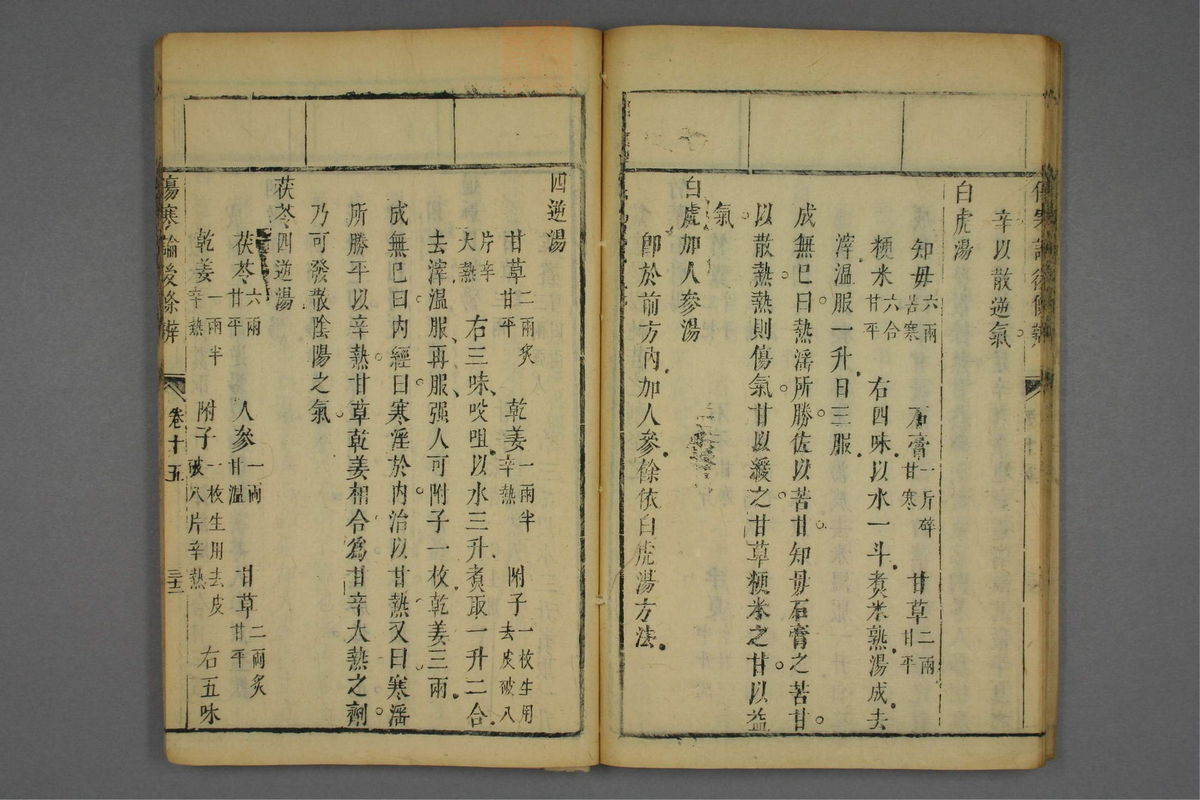 傷寒論後條辨
辛以散逆氣
白虎湯
知毋六兩苦寒 石膏一斤碎甘寒 甘草二兩甘平
粳米六合甘平 右四味以水一斗煑米熟湯成去
滓溫服一升日三服
成無巳曰熱淫所勝佐以苦甘知毋石膏之苦甘
以散熱熱則傷氣甘以緩之甘草粳米之甘以益
氣
白虎加人參湯
卽於前方內加人參餘依白虎湯方法
四逆湯
甘草二兩炙甘平 乾姜一兩半辛熱 附子一枚生用去皮破八
片辛大熱 右三味㕮咀以水三升煑取一升二合
去滓溫服再服强人可附子一枚乾姜三兩
成無巳曰內經曰寒淫於內治以甘熱又曰寒淫
所勝平以辛熱甘草乾姜相合爲甘辛大熱之劑
乃可發散陰陽之氣
茯苓四逆湯
茯苓六兩甘平 人參一兩甘溫 甘草二兩炙甘平
乾姜一兩半辛熱 附子一枚生用去皮破八片辛熱 右五味
傷寒論後條辨 卷十五 三十二